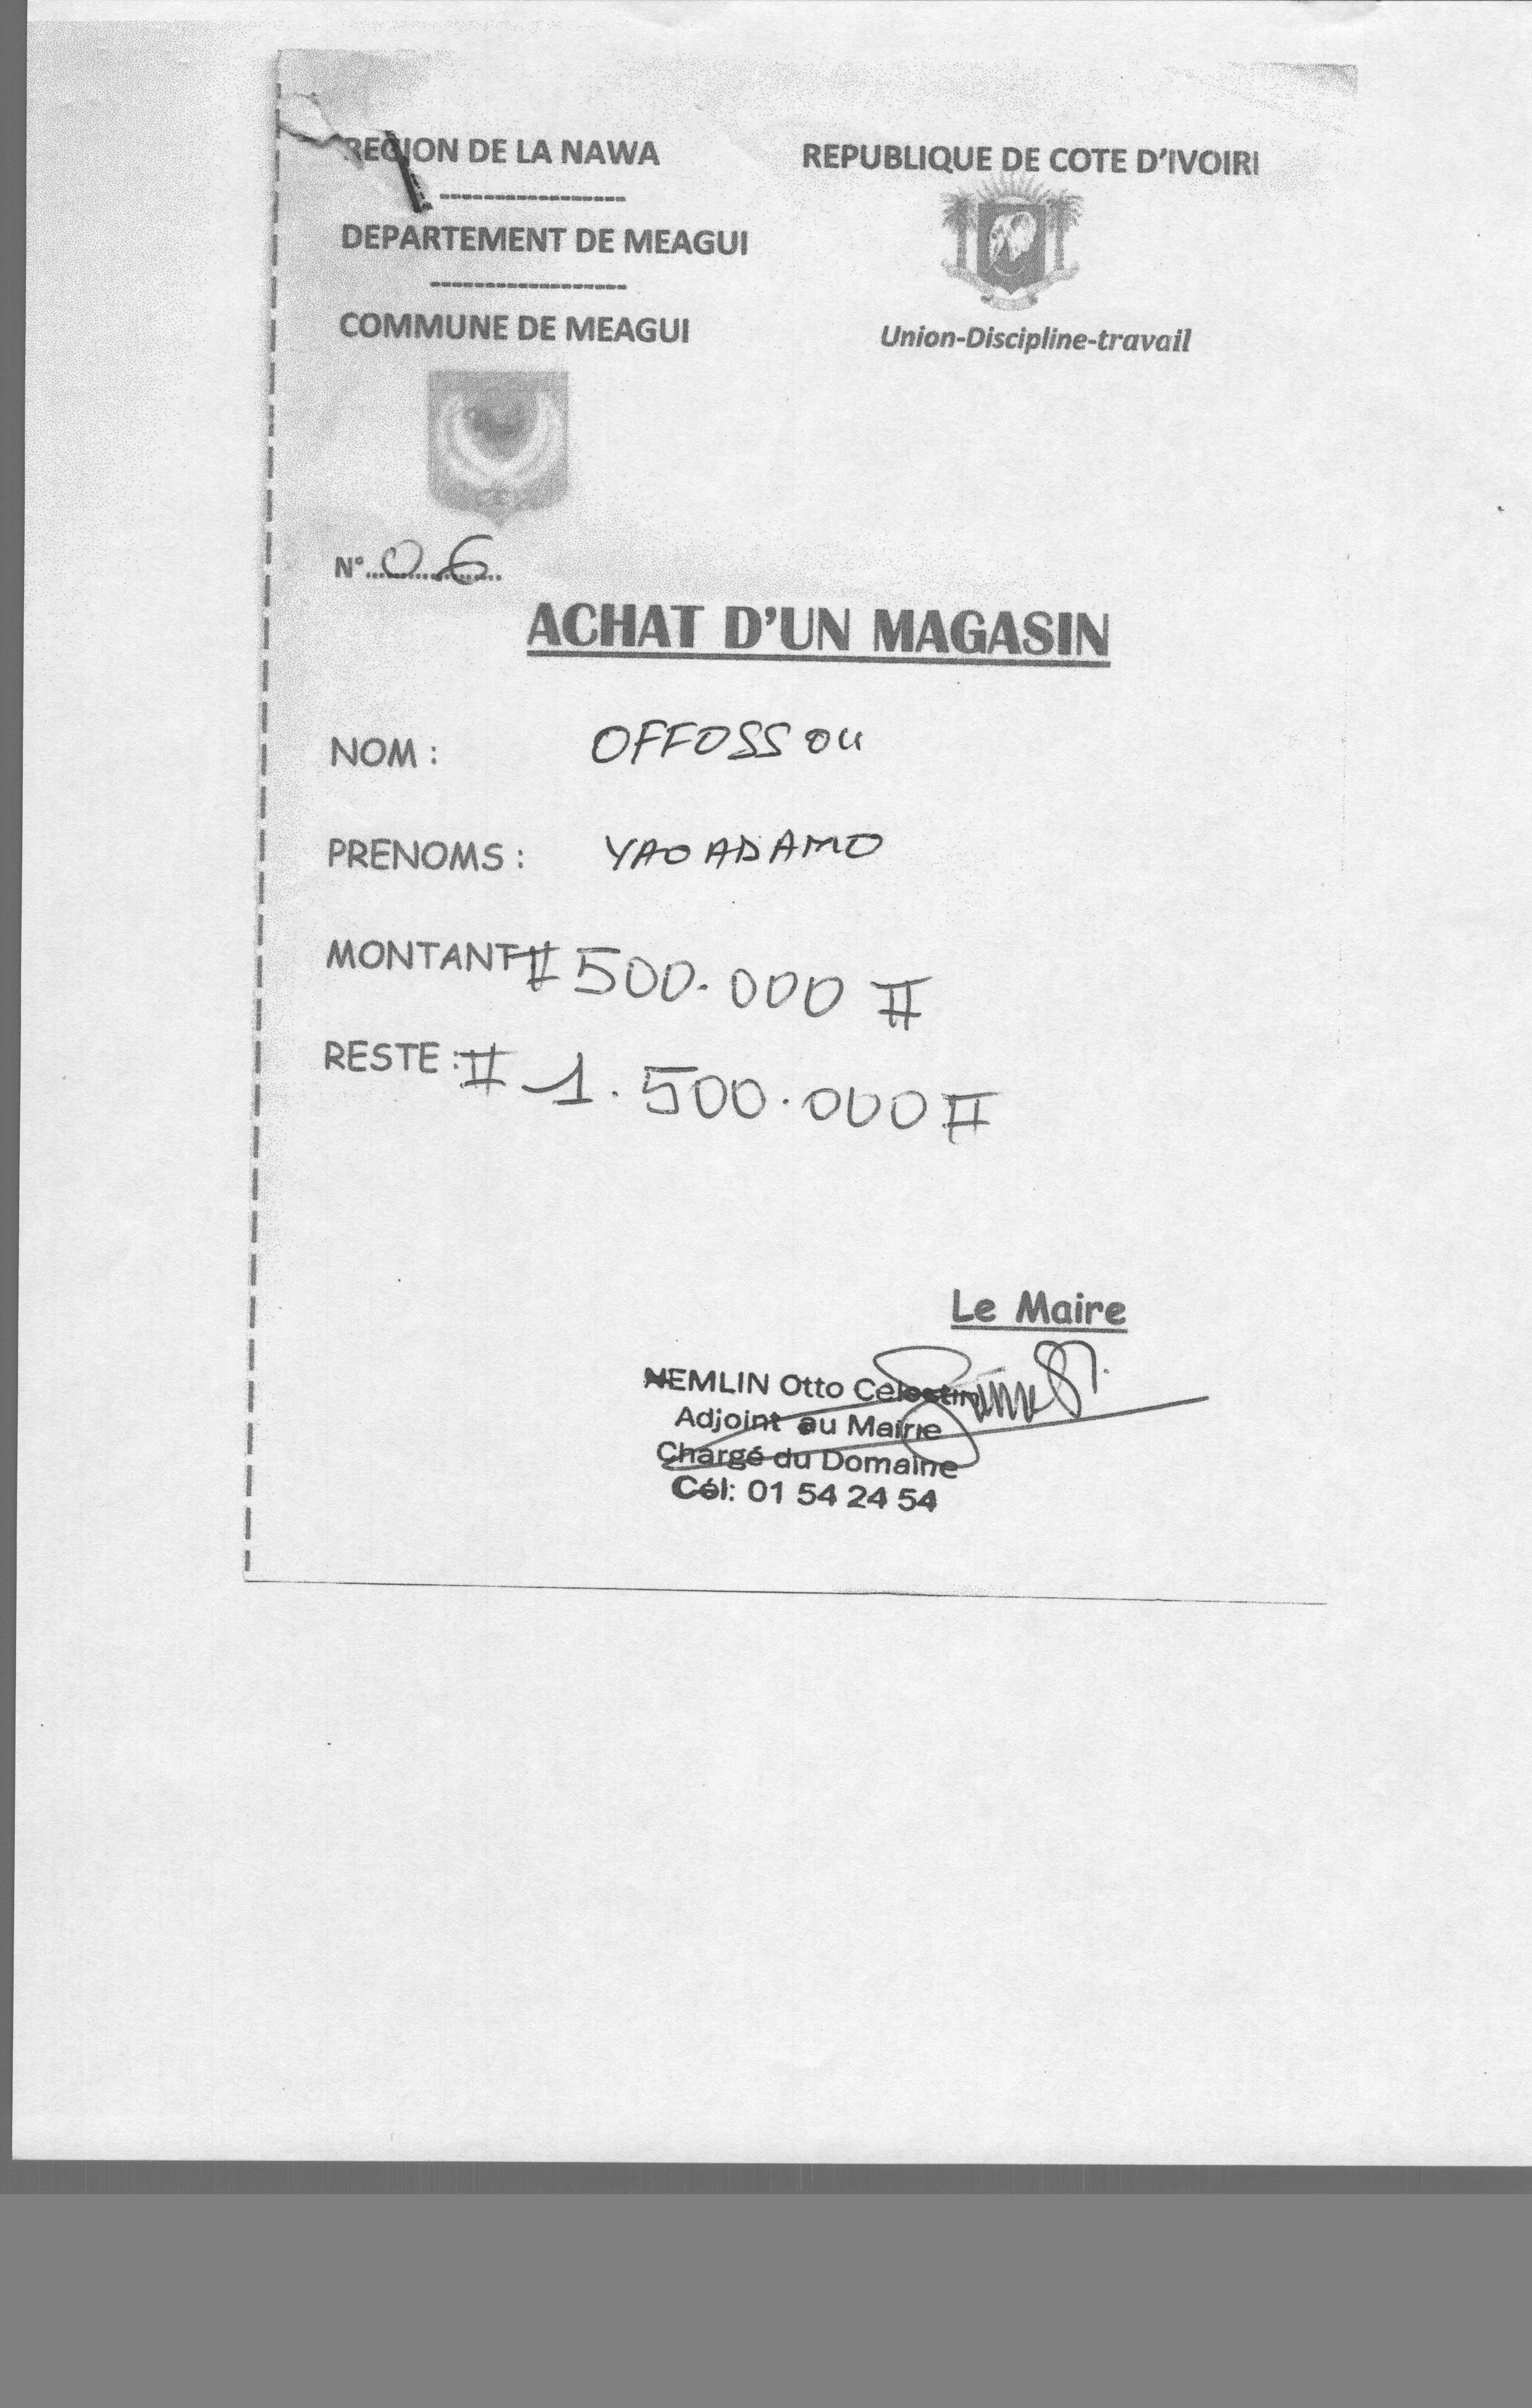 REGION DE LA NAWA
------------------
DEPARTEMENT DE MEAGUI
-------------------
COMMUNE DE MEAGUI
REPUBLIQUE DE COTE D'IVOIRI
Union-Discipline-travail
N°...06...
ACHAT D'UN MAGASIN
NOM : OFFOSSOU
PRENOMS : YAO ADAMO
MONTANT # 500.000 #
RESTE : # 1.500.000 #
Le Maire
NEMLIN Otto Celestin
Adjoint au Mairie
Chargé du Domaine
Cél: 01 54 24 54